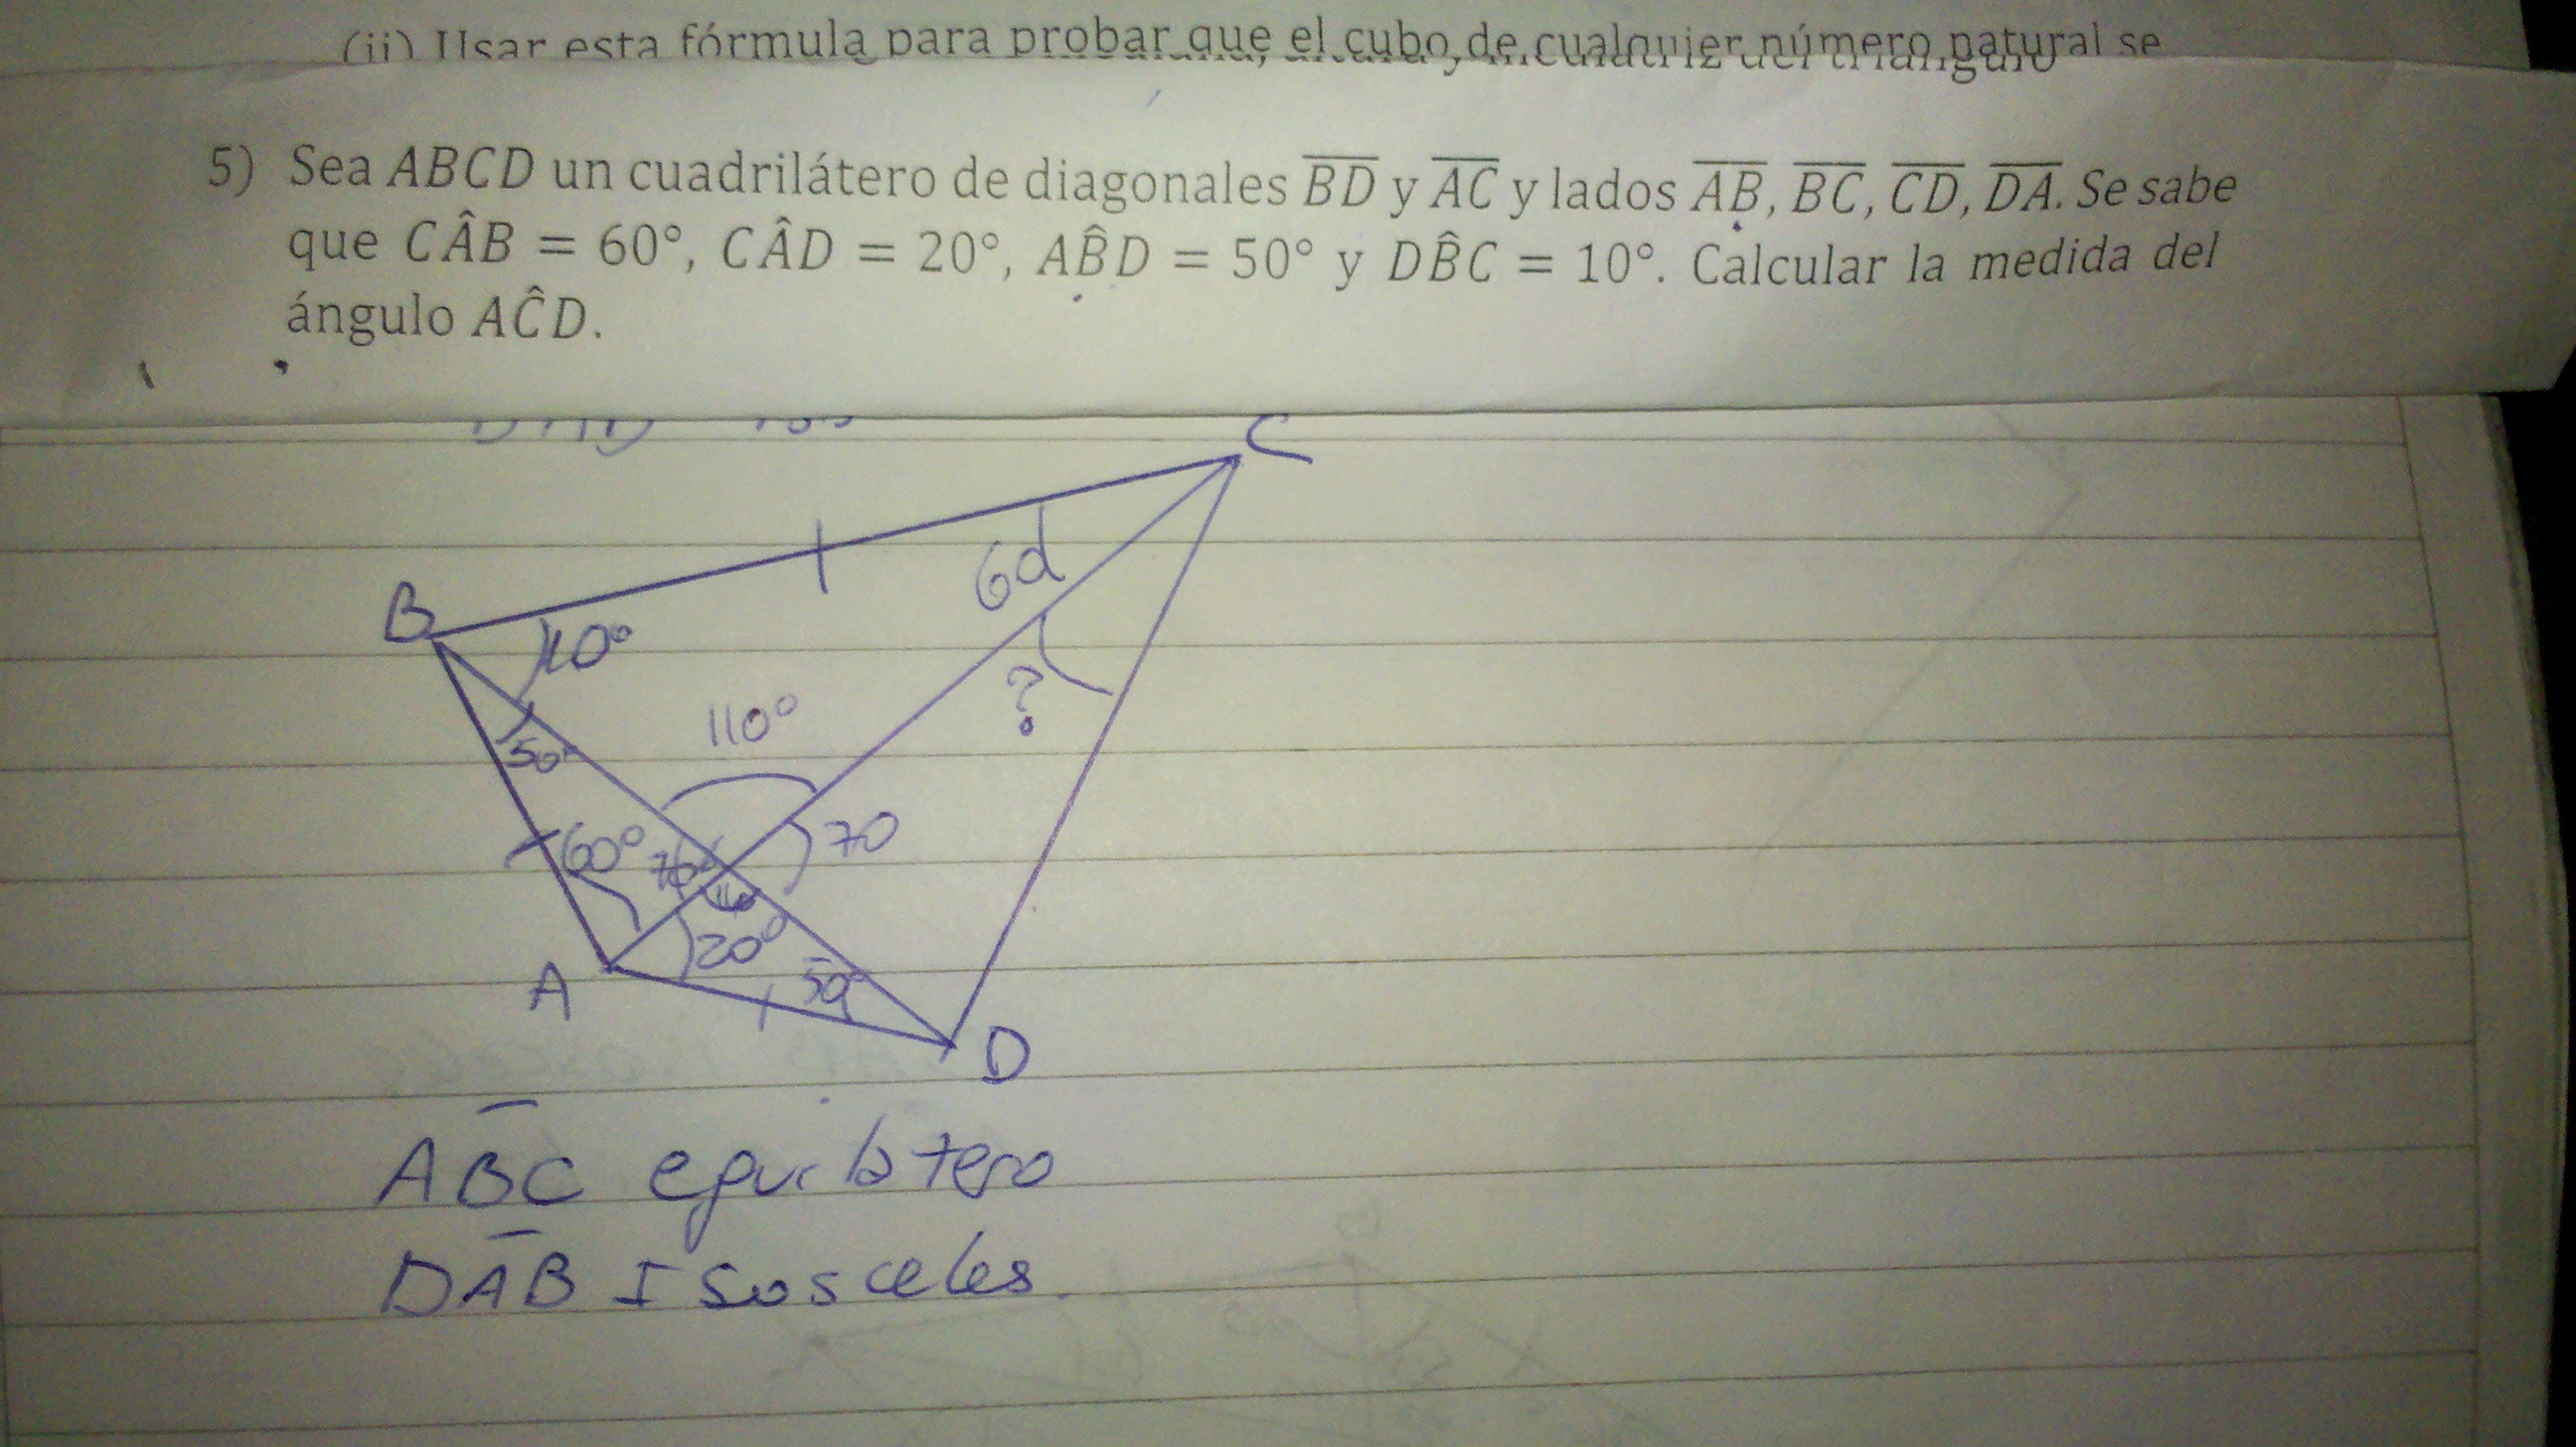 (ii) Usar esta fórmula para probar que el cubo de cualquier número natural se
5) Sea ABCD un cuadrilátero de diagonales \overline{BD} y \overline{AC} y lados \overline{AB}, \overline{BC}, \overline{CD}, \overline{DA}. Se sabe
que CÂB = 60°, CÂD = 20°, AB̂D = 50° y DB̂C = 10°. Calcular la medida del
ángulo AĈD.
C
B
10°
6d
?
50°
110°
60°
70°
70
20°
50°
A
D
ABC equilatero
DAB Isosceles.